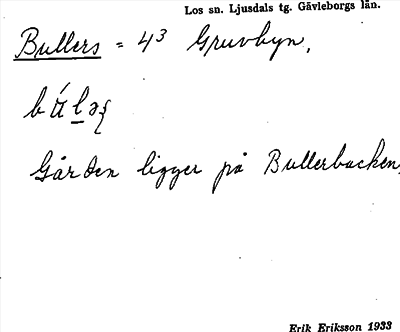 Los sn. Ljusdals tg. Gävleborgs län.
Bullers = 4³ Gruvbyn,
Gården ligger på Bullerbacken.
Erik Eriksson 1933